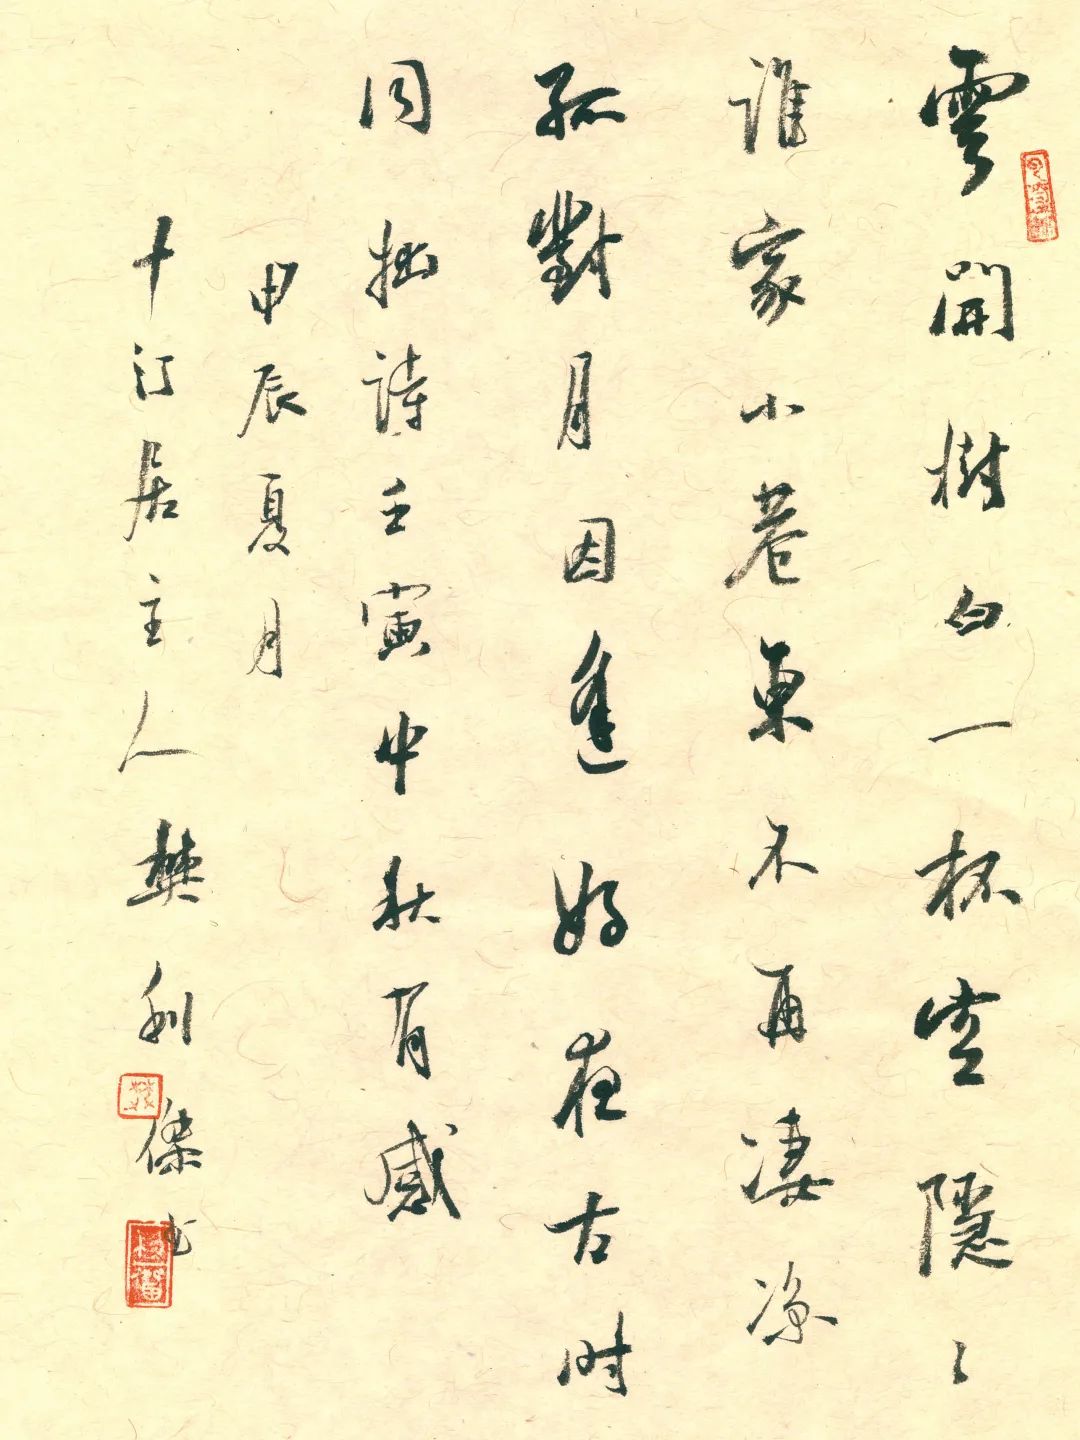 雲開樹白一杯空隱々
誰家小巷東不再凄凉
孤對月因逢好夜古时
同拙詩壬寅中秋有感
甲辰夏月
十汀居主人樊利傑书